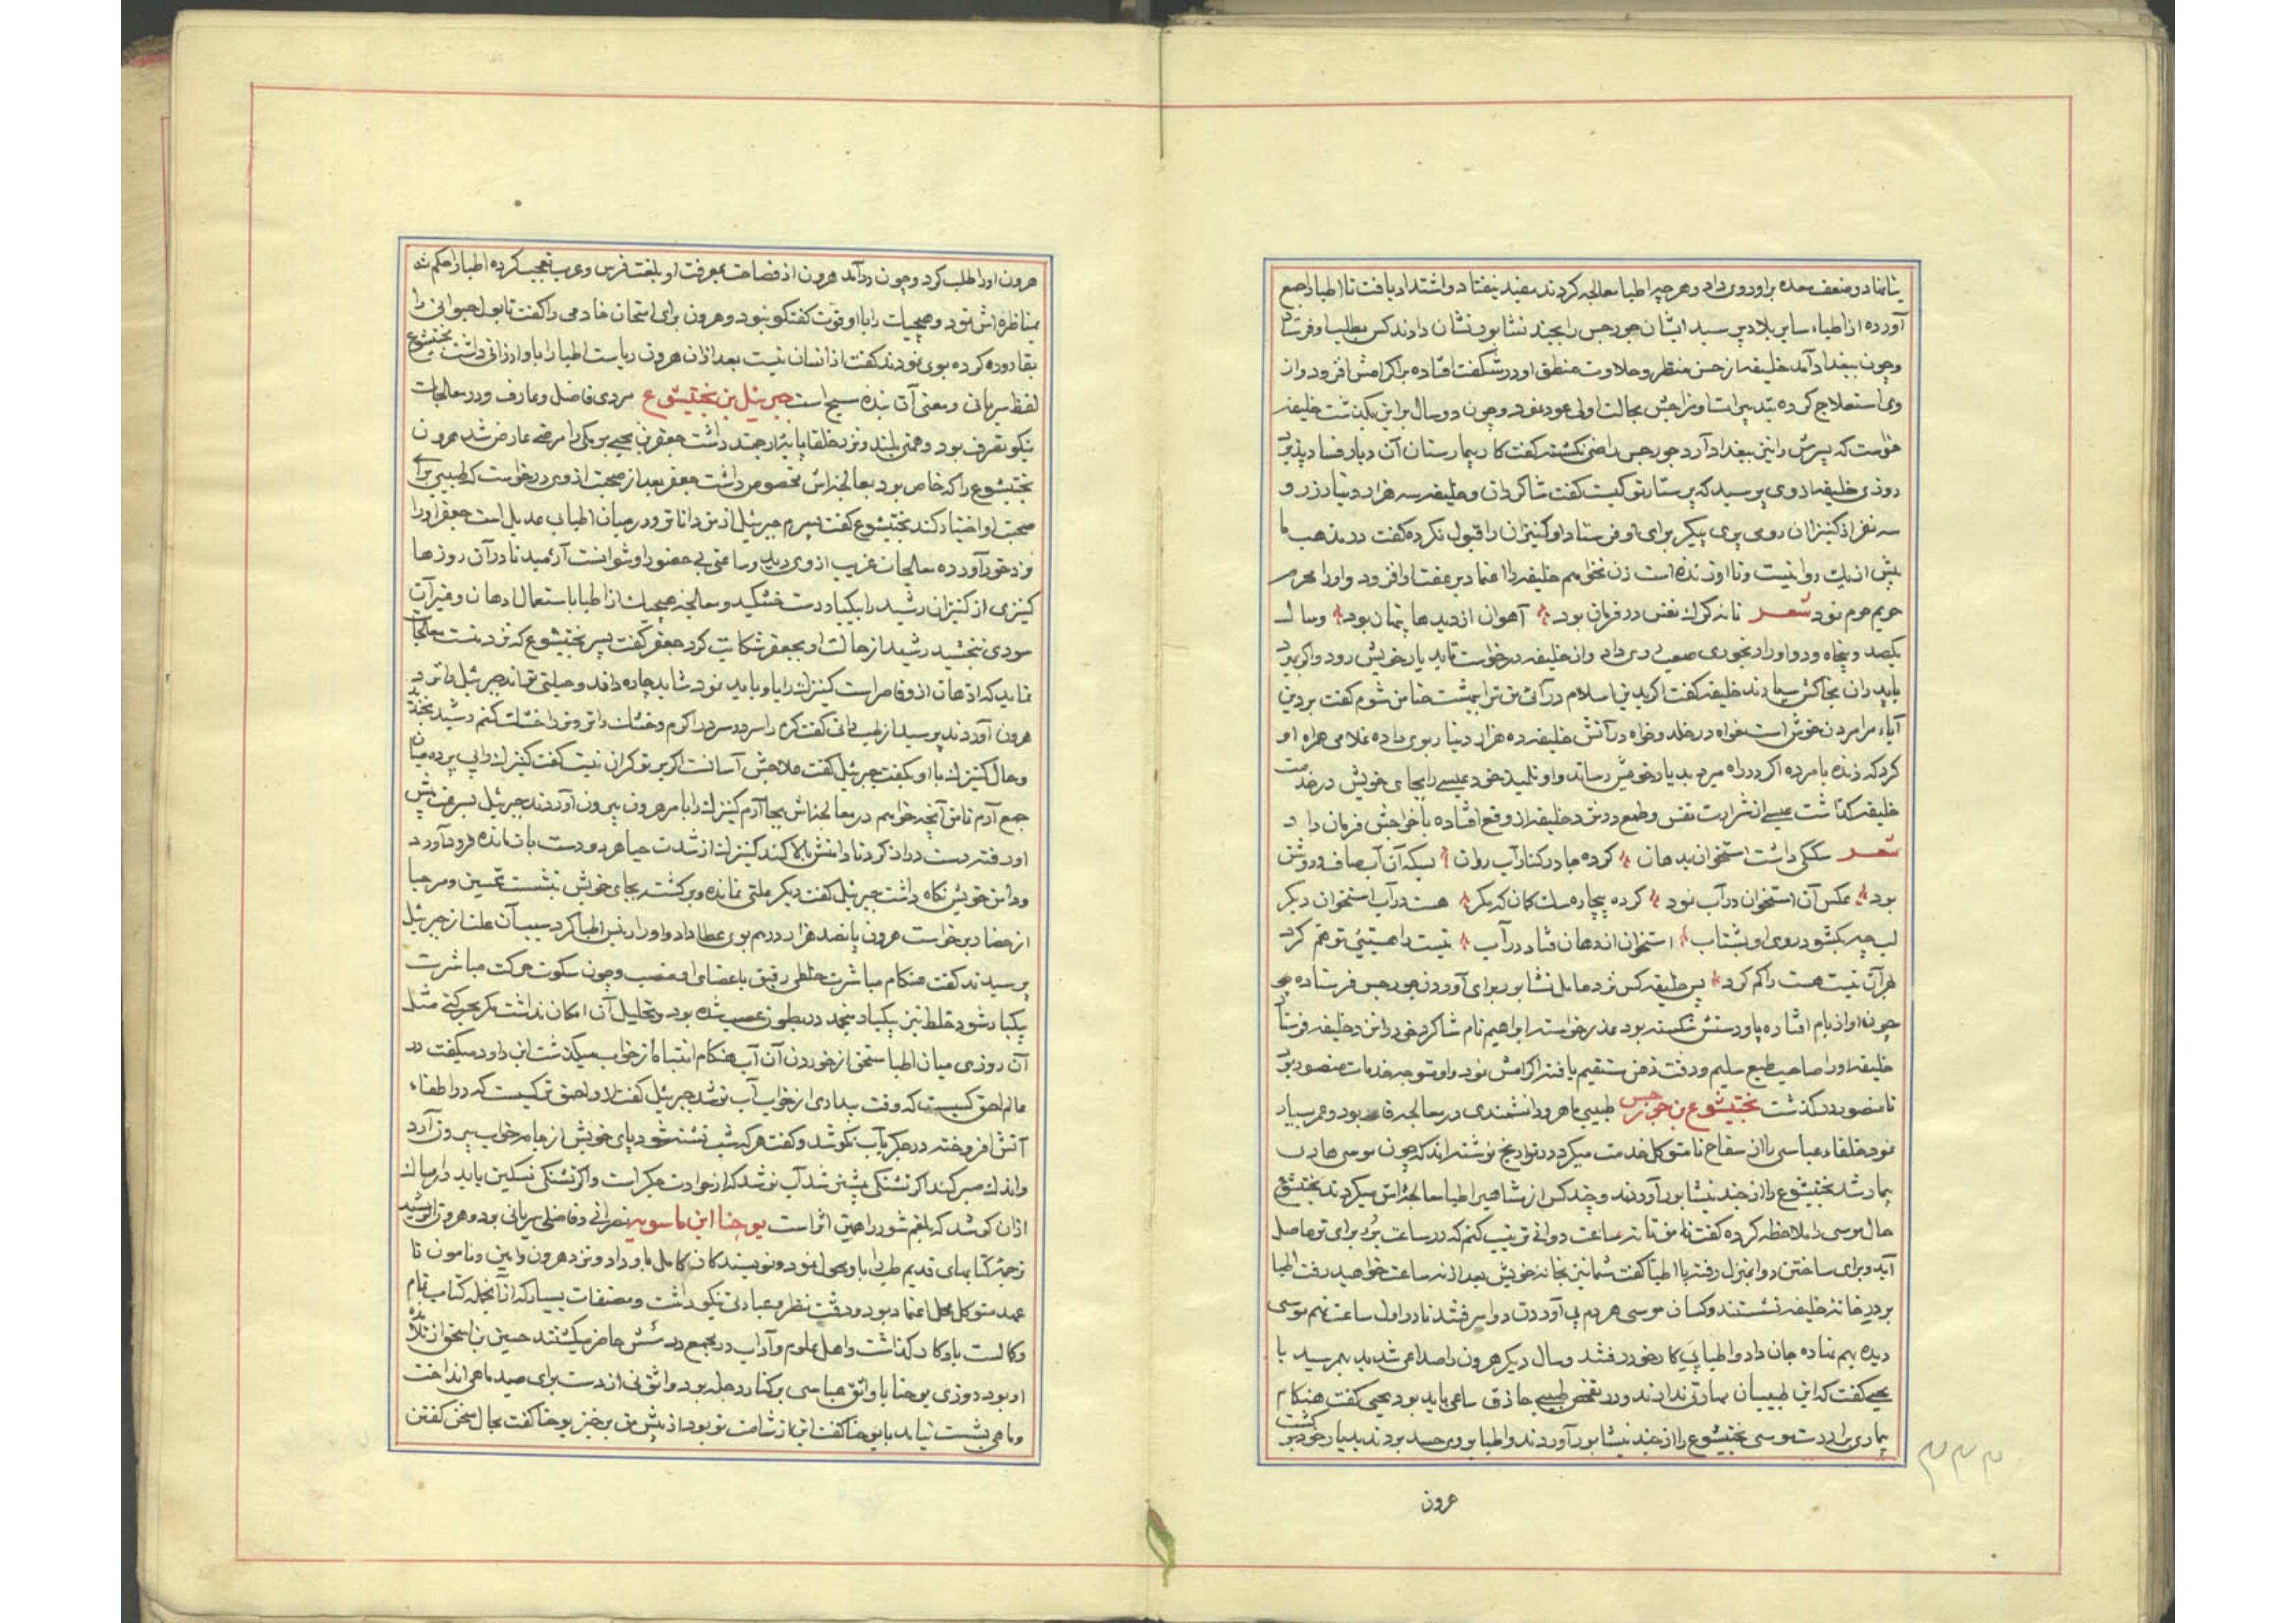 آورده از اطباء سایر بلاد پرسید ایشان جورجس را بجند نشابور نشان دادند کس بطلب او فرستاد
وچون ببغداد آمد خلیفه از حسن منظر و حلاوت منطق او در شکفت افتاده براکرامش افزود و از
وی استعلاج کرده بتدبیرات او مزاجش بحالت اولی عود نمود وچون دو سال براین بکذشت خلیفه
خواست که پسرش را نیز ببغداد آرد جورجس راضی نکشته کفت کار بیمارستان آن دیار فساد پذیرد
روزی خلیفه از وی پرسید که پرستار تو کیست کفت شاکردان و خلیفه سه هزار دینار زر و
سه نفر از کنیزان رومی پری پیکر برای او فرستاد او کنیزان را قبول نکرده کفت در مذهب ما
بیش از یک زن روا نیست و تا او زنده است زن نخواهم خلیفه را اعتماد بر عفت او افزود و او را محرم
حریم حرم نمود شعر تا نه کرک نفس در فرمان بود آهوان از دیدها پنهان بود و سال
یکصد و پنجاه و دو او را رنجوری صعب روی داد و از خلیفه درخواست تا بدیار خویش رود و اکر میرد
بپدران بخاکش سپارند خلیفه کفت اکر بدین اسلام در آئی من ترا بهشت ضامن شوم کفت بر دین
آباء مرا مردن خوش است خواه در خلد و خواه در آتش خلیفه ده هزار دینار بوی داده غلامی همراه او
کرد که زنده یا مرده اکر در راه میرد بدیار خویش رساند و او تلمیذ خود عیسی را بجای خویش در خدمت
خلیفه کذاشت عیسی از شرارت نفس و طمع در نزد خلیفه از وقع افتاده باخراجش فرمان داد
شعر سککی داشت استخوان بدهان کرده جا در کنار آب روان بسکه آن آب صاف و روشن
بود عکس آن استخوان در آب نمود کرده بیچاره سک کمان که مکر هست در آب استخوان دیکر
لب چو بکشود بر وی او بشتاب استخوان از دهان فتاد در آب نیست را هستیئی توهم کرد
بهر آن نیست هست را کم کرد پس خلیفه کس نزد عامل نشابور برای آوردن جورجس فرستاده
چون او از بام افتاده پا و دستش شکسته بود عذر خواسته ابراهیم نام شاکرد خود را نزد خلیفه فرستاد
خلیفه او را صاحب طبع سلیم و دقت ذهن مستقیم یافته اکرامش نمود و او متوجه خدمات منصور بود
تا منصور درکذشت بختیشوع بن جورجس طبیبی ماهر و دانشمندی در معالجه بود و عمر بسیار
نمود خلفاء عباسی را از سفاح تا متوکل خدمت میکرد در تواریخ نوشته اند که چون موسی هادی
بیمار شد بختیشوع را از جند نیشابور آوردند و چند کس از مشاهیر اطبا معالجه اش میکردند بختیشوع
حال موسی را ملاحظه کرده کفت تا من تا نه ساعت دوائی ترتیب کنم که در ساعت برء برای تو حاصل
آید و برای ساختن دوا بمنزل رفته با اطبا کفت شما نیز بخانه خویش بعد از نه ساعت خواهید رفت اطبا
بر در خانه خلیفه نشستند و کسان موسی هردم پی آوردن دوا میرفتند تا در اول ساعت نهم موسی
دیده بهم نهاده جان داد و اطبا پی کار خود رفتند و سال دیکر هرون را صداعی شدید بهم رسید با
یحیی کفت که این طبیبان مهارتی ندارند و در تفحص طبیبی حاذق ساعی باید بود یحیی کفت هنکام
بیماری برادرت موسی بختیشوع را از جند نیشابور آوردند و اطبا بر وی حسد بردند بدیار خود برکشت
هرون
۳۳۳
هرون او را طلب کرد و چون درآمد هرون از فصاحت و معرفت او بلغت فرس و عرب تعجب کرده اطبا را حکم شد
بمناظره اش نمود و هیچیک را با او قوت کفتکو نبود و هرون برای امتحان خادمی را کفت تا بول حیوانی را
بقاروره کرده بوی نمودند کفت از انسان نیست بعد از آن هرون ریاست اطبا را باو ارزانی داشت بختیشوع
لفظ سریانی و معنی آن بنده مسیح است جبرئیل بن بختیشوع مردی فاضل و عارف و در معالجات
نیکو تصرف بود و همتی بلند و نزد خلفا پایهٔ ارجمند داشت جعفر بن یحیی برمکی را مرضی عارض شد هرون
بختیشوع را که خاص بود بمعالجه اش مخصوص داشت جعفر بعد از صحت از وی درخواست که طبیبی برای
صحبت او اختیار کند بختیشوع کفت پسرم جبرئیل از من داناتر و در میان اطبا بی عدیل است جعفر او را
نزد خود آورده معالجات غریب از وی دید و ساعتی بی حضور او نتوانست آرمید تا در آن روزها
کنیزی از کنیزان رشید را بیکبار دست خشکید و معالجه هیچیک از اطبا باستعمال ادهان و غیر آن
سودی نبخشید رشید از حالت او بجعفر شکایت کرد جعفر کفت پسر بختیشوع که نزد منست معالجات
نماید که اذهان از او قاصر است کنیزک را باو باید نمود شاید چاره داند و حیلتی تواند جبرئیل را نزد
هرون آوردند پرسید از طب چه دانی کفت کرم را سرد و سرد را کرم و خشک را تر و تر را خشک کنم رشید بخندید
و حال کنیزک با او بکفت جبرئیل کفت علاجش آسانست اکر بر تو کران نیست کفت کنیزک را بی پرده میان
جمع آرم تا من آنچه خواهم در معالجه اش بجا آرم کنیزک را بامر هرون بیرون آوردند جبرئیل بسرعت پیش
او رفته دست دراز کرد تا دامنش بالا کند کنیزک از شدت حیا هر دو دست باز مانده فرود آورد
و دامن خویش نکاه داشت جبرئیل کفت دیکر علتی نمانده و برکشته بجای خویش بنشست تحسین و مرحبا
از حضار برخواست هرون پانصد هزار درهم بوی عطا داد و او را رئیس اطبا کرد سبب آن علت از جبرئیل
پرسیدند کفت هنکام مباشرت خلطی رقیق باعضای او منصب و چون سکوت حرکت مباشرت
یکبار شود خلط نیز یکبار منجمد در بطون عصب شده بود و تحلیل آن امکان نداشت مکر بحرکتی مثل
آن روزی میان اطبا سخن از خوردن آب هنکام انتباه از خواب میکذشت ابن داود میکفت در
عالم احمق کیست که وقت بیداری از خواب آب نوشد جبرئیل کفت از او احمق تر کیست که در اطفاء
آتش افروخته در جکر بآب نکوشد و کفت هر که شب تشنه شود پای خویش از جامه خواب بیرون آرد
و اندک صبر کند اکر تشنکی بیشتر شد آب نوشد که از حرارت جکر است و اکر تشنکی تسکین یابد در امساک
از آن کوشد که بلغم شور را همین اثر است یوحنا ابن ماسویه نصرانی و فاضلی سریانی بود و هرون الرشید
ترجمهٔ کتابهای قدیم طب را باو محول نمود و نویسندکان کامل باو داد و نزد هرون و امین و مامون تا
عهد متوکل محل اعتماد بود و دقت نظر و عبادتی نیکو داشت و مصنفات بسیار که از آنجمله کتاب تمام
و کمالست یادکار کذاشت و اهل علوم و آداب در مجمع درسش حاضر میکشتند حسین بن اسحق از تلامذه
او بود روزی یوحنا با واثق عباسی بر کنار دجله بود واثق نی از دست برای صید ماهی انداخت
و ماهی بشست نیامد با یوحنا کفت این از شئامت تو بود از پیش من برخیز یوحنا کفت بحال سخن کفتن